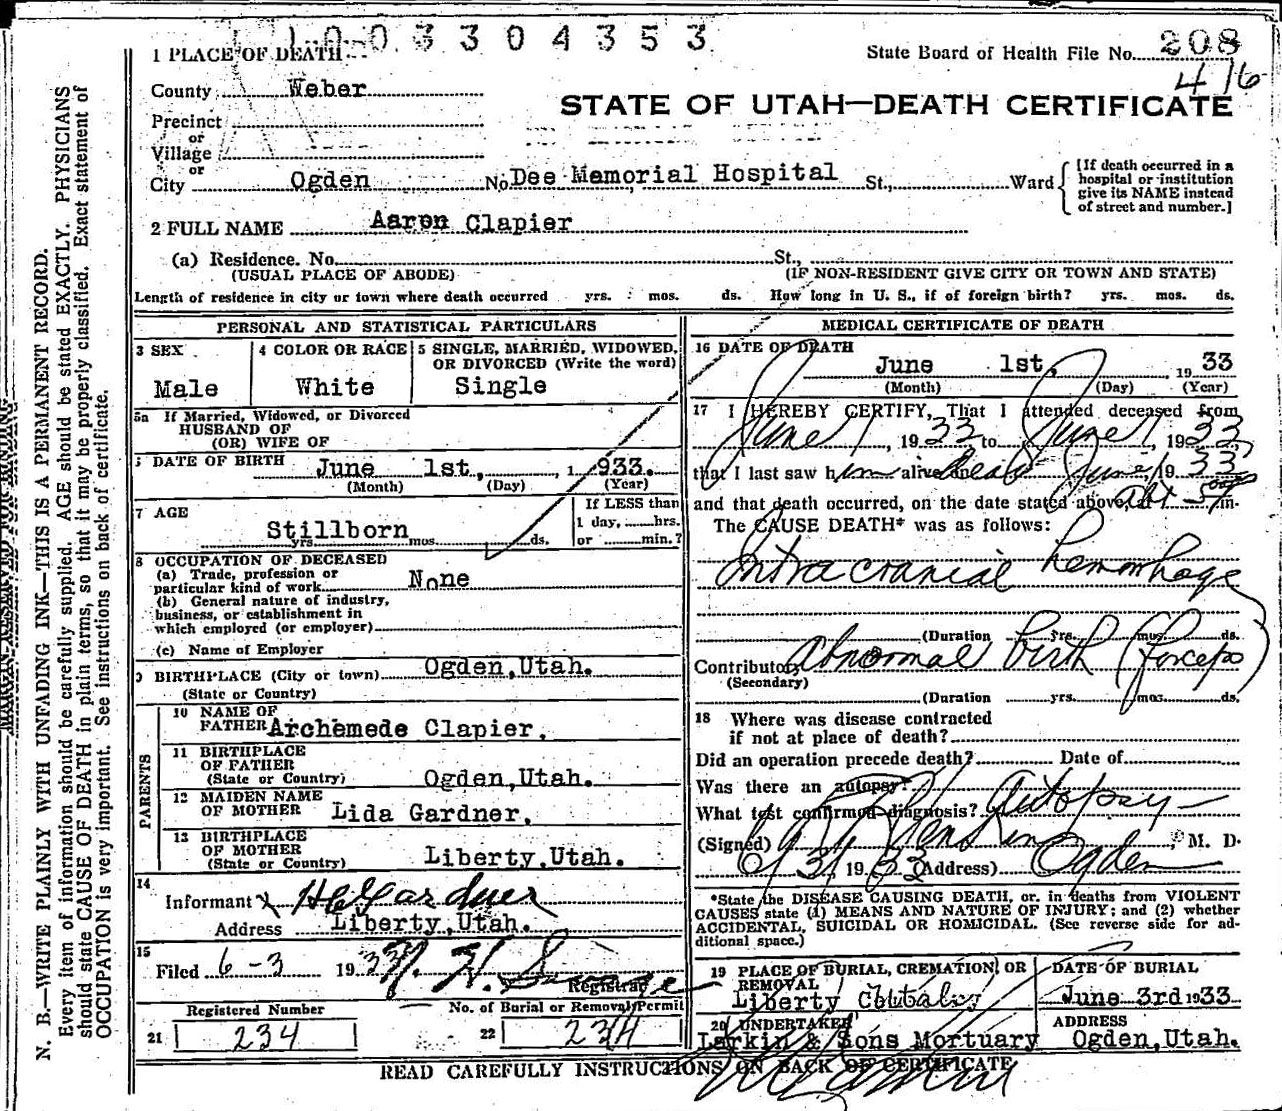 1003304353
State Board of Health File No. 208
416
1 PLACE OF DEATH
County Weber
STATE OF UTAH—DEATH CERTIFICATE
Precinct
or
Village
or
City Ogden No. Dee Memorial Hospital St., Ward
[If death occurred in a hospital or institution give its NAME instead of street and number.]
2 FULL NAME Aaron Clapier
(a) Residence. No. St.,
(USUAL PLACE OF ABODE) (IF NON-RESIDENT GIVE CITY OR TOWN AND STATE)
Length of residence in city or town where death occurred yrs. mos. ds. How long in U. S., if of foreign birth? yrs. mos. ds.
PERSONAL AND STATISTICAL PARTICULARS
3 SEX
Male
4 COLOR OR RACE
White
5 SINGLE, MARRIED, WIDOWED,
OR DIVORCED (Write the word)
Single
5a If Married, Widowed, or Divorced
HUSBAND OF
(OR) WIFE OF
DATE OF BIRTH June 1st, 1 933.
(Month) (Day) (Year)
7 AGE
Stillborn
yrs. mos. ds.
If LESS than
1 day, hrs.
or min.?
8 OCCUPATION OF DECEASED
(a) Trade, profession or
particular kind of work None
(b) General nature of industry,
business, or establishment in
which employed (or employer)
(c) Name of Employer
9 BIRTHPLACE (City or town) Ogden, Utah.
(State or Country)
PARENTS
10 NAME OF
FATHER Archemede Clapier.
11 BIRTHPLACE
OF FATHER
(State or Country) Ogden, Utah.
12 MAIDEN NAME
OF MOTHER Lida Gardner.
13 BIRTHPLACE
OF MOTHER
(State or Country) Liberty, Utah.
14
Informant x H E Gardner
Address Liberty, Utah.
15
Filed 6-3 1933
Registrar
Registered Number
21 234
No. of Burial or Removal Permit
22 234
MEDICAL CERTIFICATE OF DEATH
16 DATE OF DEATH
June 1st, 1933
(Month) (Day) (Year)
17 I HEREBY CERTIFY, That I attended deceased from
June 1, 1933 to June 1, 1933
that I last saw him alive dead June 1 1933
and that death occurred, on the date stated above, at m.
The CAUSE DEATH* was as follows:
Intracranial hemorrhage
(Duration yrs. mos. ds.
Contributory Abnormal birth (forceps)
(Secondary)
(Duration yrs. mos. ds.
18 Where was disease contracted
if not at place of death?
Did an operation precede death? Date of
Was there an autopsy?
What test confirmed diagnosis? Autopsy
(Signed) M. D.
6/3/ 1933 (Address) Ogden
*State the DISEASE CAUSING DEATH, or. in deaths from VIOLENT
CAUSES state (1) MEANS AND NATURE OF INJURY; and (2) whether
ACCIDENTAL, SUICIDAL OR HOMICIDAL. (See reverse side for ad-
ditional space.)
19 PLACE OF BURIAL, CREMATION, OR
REMOVAL
Liberty
DATE OF BURIAL
June 3rd 1933
20 UNDERTAKER
Larkin & Sons Mortuary
ADDRESS
Ogden, Utah.
READ CAREFULLY INSTRUCTIONS ON BACK OF CERTIFICATE
MARGIN RESERVED FOR BINDING
N. B.—WRITE PLAINLY WITH UNFADING INK—THIS IS A PERMANENT RECORD.
Every item of information should be carefully supplied. AGE should be stated EXACTLY. PHYSICIANS
should state CAUSE OF DEATH in plain terms, so that it may be properly classified. Exact statement of
OCCUPATION is very important. See instructions on back of certificate.